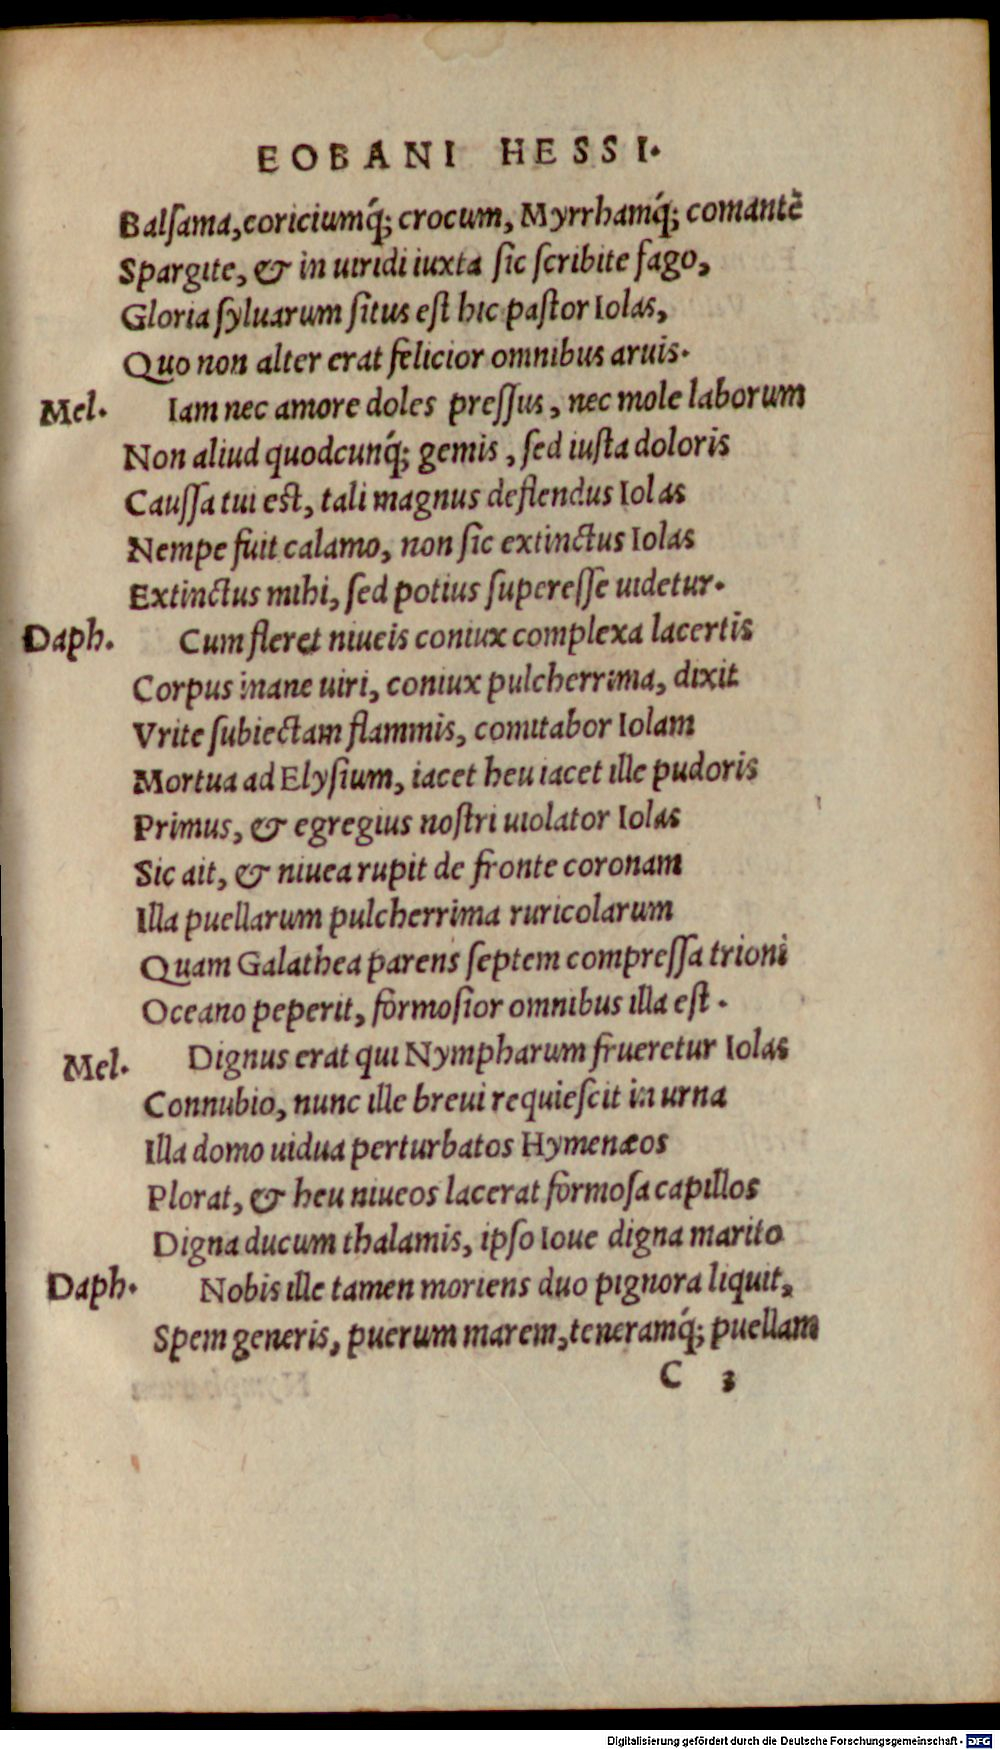 EOBANI HESSI.
Balſama, coriciumq́; crocum, Myrrhamq́; comantē
Spargite, & in uiridi iuxta ſic ſcribite fago,
Gloria ſyluarum ſitus eſt hic paſtor Iolas,
Quo non alter erat felicior omnibus aruis.
Mel. Iam nec amore doles preſſus, nec mole laborum
Non aliud quodcunq́; gemis, ſed iuſta doloris
Cauſſa tui est, tali magnus deflendus Iolas
Nempe fuit calamo, non ſic extinctus Iolas
Extinctus mihi, ſed potius ſupereſſe uidetur.
Daph. Cum fleret niueis coniux complexa lacertis
Corpus inane uiri, coniux pulcherrima, dixit
Vrite ſubiectam flammis, comitabor Iolam
Mortua ad Elyſium, iacet heu iacet ille pudoris
Primus, & egregius noſtri uiolator Iolas
Sic ait, & niuea rupit de fronte coronam
Illa puellarum pulcherrima ruricolarum
Quam Galathea parens ſeptem compreſſa trioni
Oceano peperit, formoſior omnibus illa eſt.
Mel. Dignus erat qui Nympharum frueretur Iolas
Connubio, nunc ille breui requieſcit in urna
Illa domo uidua perturbatos Hymenæos
Plorat, & heu niueos lacerat formoſa capillos
Digna ducum thalamis, ipſo Ioue digna marito
Daph. Nobis ille tamen moriens duo pignora liquit,
Spem generis, puerum marem, teneramq́; puellam
C 3
Digitalisierung gefördert durch die Deutsche Forschungsgemeinschaft - DFG